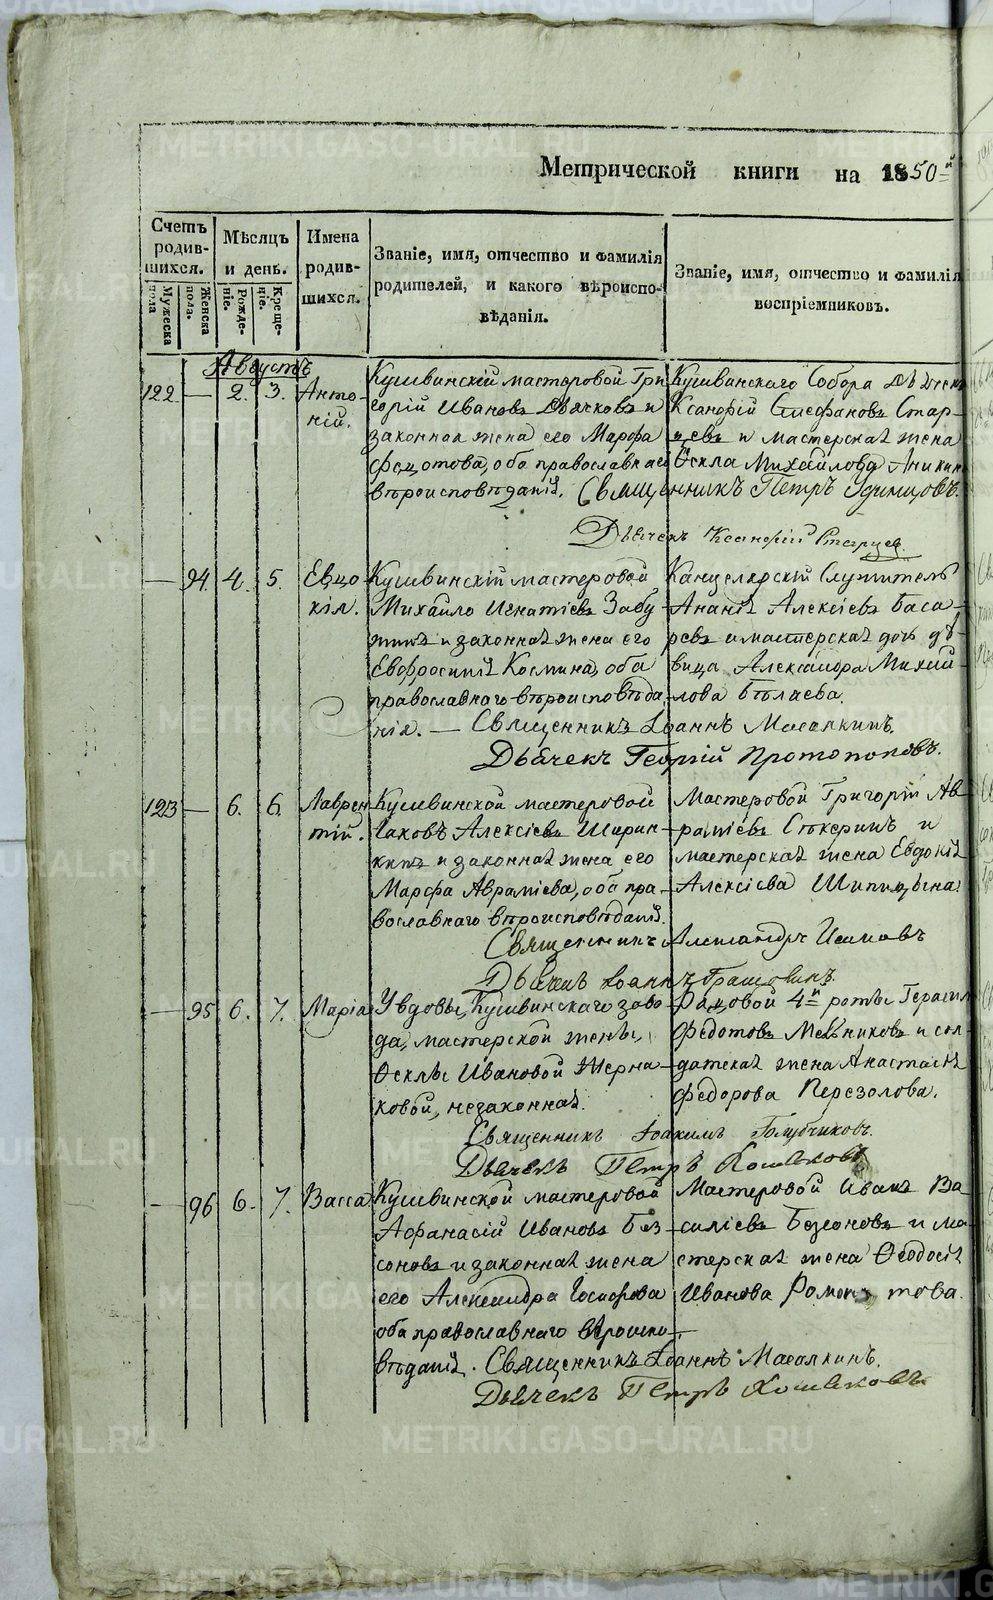 Метрической книги на 1850й
Счетъ родившихся.
Мужеска пола
Женска пола.
Мѣсяцъ и день.
Рожденіе.
Крещеніе.
Имена родившихся.
Званіе, имя, отчество и фамилія родителей, и какого вѣроисповѣданія.
Званіе, имя, отчество и фамилія воспріемниковъ.
Августъ
122 — 2. 3. Антоній.
Кушвинскій мастеровой Григорій Ивановъ Дьячковъ и
законная жена его Марфа
Федотова, оба православнаго
вѣроисповѣданія.
Кушвинскаго Собора Дьячекъ
Ксанфій Стефановъ Старцевъ и мастерская жена
Ѳекла Михайлова Аникина
Священникъ Петръ Удинцовъ.
Дьячекъ Ксанфій Старцев.
— 94. 4. 5. Евдокія.
Кушвинскій мастеровой
Михайло Игнатіевъ
и законная жена его
Евфросинія Космина, оба
православнаго вѣроисповѣданія.
Канцелярскій Служитель
Ананія Алексіевъ Басаревъ и мастерская дочь дѣвица Александра Михайлова Бѣляева.
— Священникъ Іоаннъ Масалкинъ.
Дьячекъ Георгій Протопоповъ.
123 — 6. 6. Лаврентій.
Кушвинской мастеровой
Іаковъ Алексіевъ
и законная жена его
Марфа Авраміева, оба православнаго вѣроисповѣданія.
Мастеровой Григорій Авраміевъ и
мастерская жена Евдокія
Алексіева Шипицына
Священникъ Александръ
Дьячекъ Іоаннъ
— 95 6. 7. Марія
У вдовы, Кушвинскаго завода, мастерской жены,
Ѳеклы Ивановой Жерна-
ковой, незаконная.
Рядовой 4й роты Герасим
Федотовъ Мельниковъ и солдатская жена Анастасія
Федорова Перезолова.
Священникъ Іоакимъ Голубчиковъ.
Дьячекъ Петръ Хошековъ
— 96 6. 7. Васса
Кушвинской мастеровой
Афанасій Ивановъ Безсоновъ и законная жена
его Александра
оба православнаго вѣроисповѣданія.
Мастеровой Иванъ Василіевъ Безсоновъ и мастерская жена Ѳеодосія
Иванова
Священникъ Іоаннъ Масалкинъ.
Дьячекъ Петръ Хошековъ
METRIKI.GASO-URAL.RU